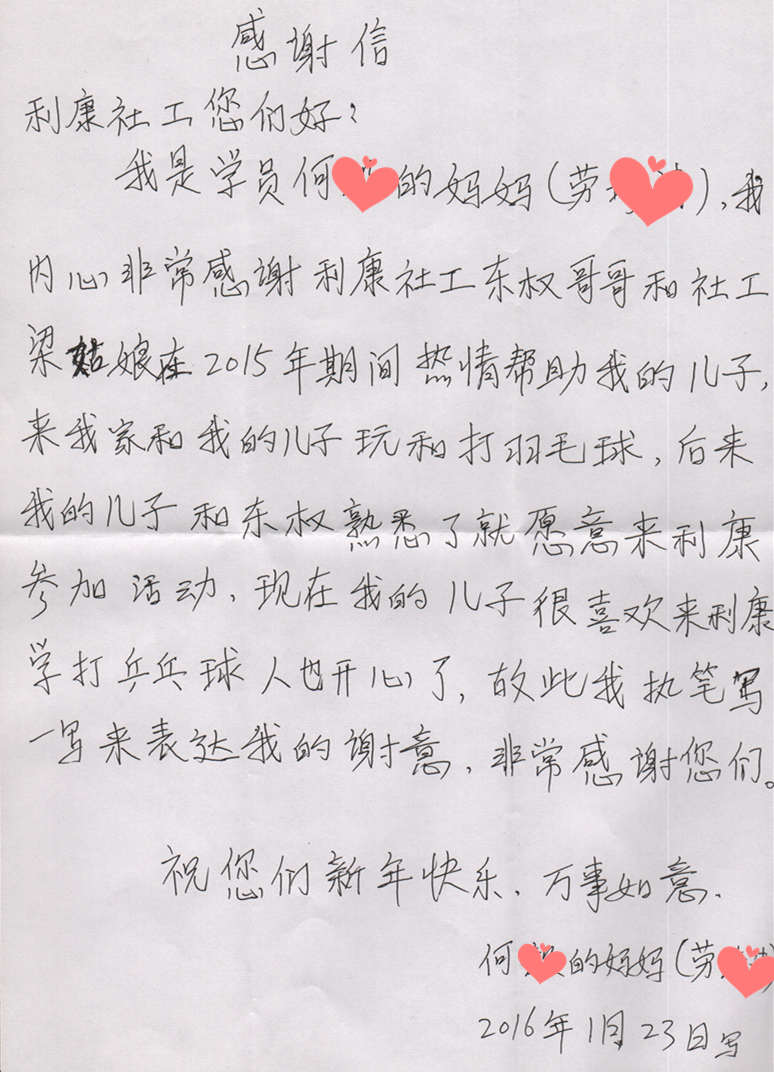 感谢信
利康社工您们好：
我是学员何 的妈妈(劳 )，我
内心非常感谢利康社工东权哥哥和社工
梁姑娘在2015年期间热情帮助我的儿子，
来我家和我的儿子玩和打羽毛球，后来
我的儿子和东权熟悉了就愿意来利康
参加活动，现在我的儿子很喜欢来利康
学打乒乓球人也开心了，故此我执笔写
一写来表达我的谢意，非常感谢您们。
祝您们新年快乐、万事如意.
何 的妈妈(劳 )
2016年1月23日写